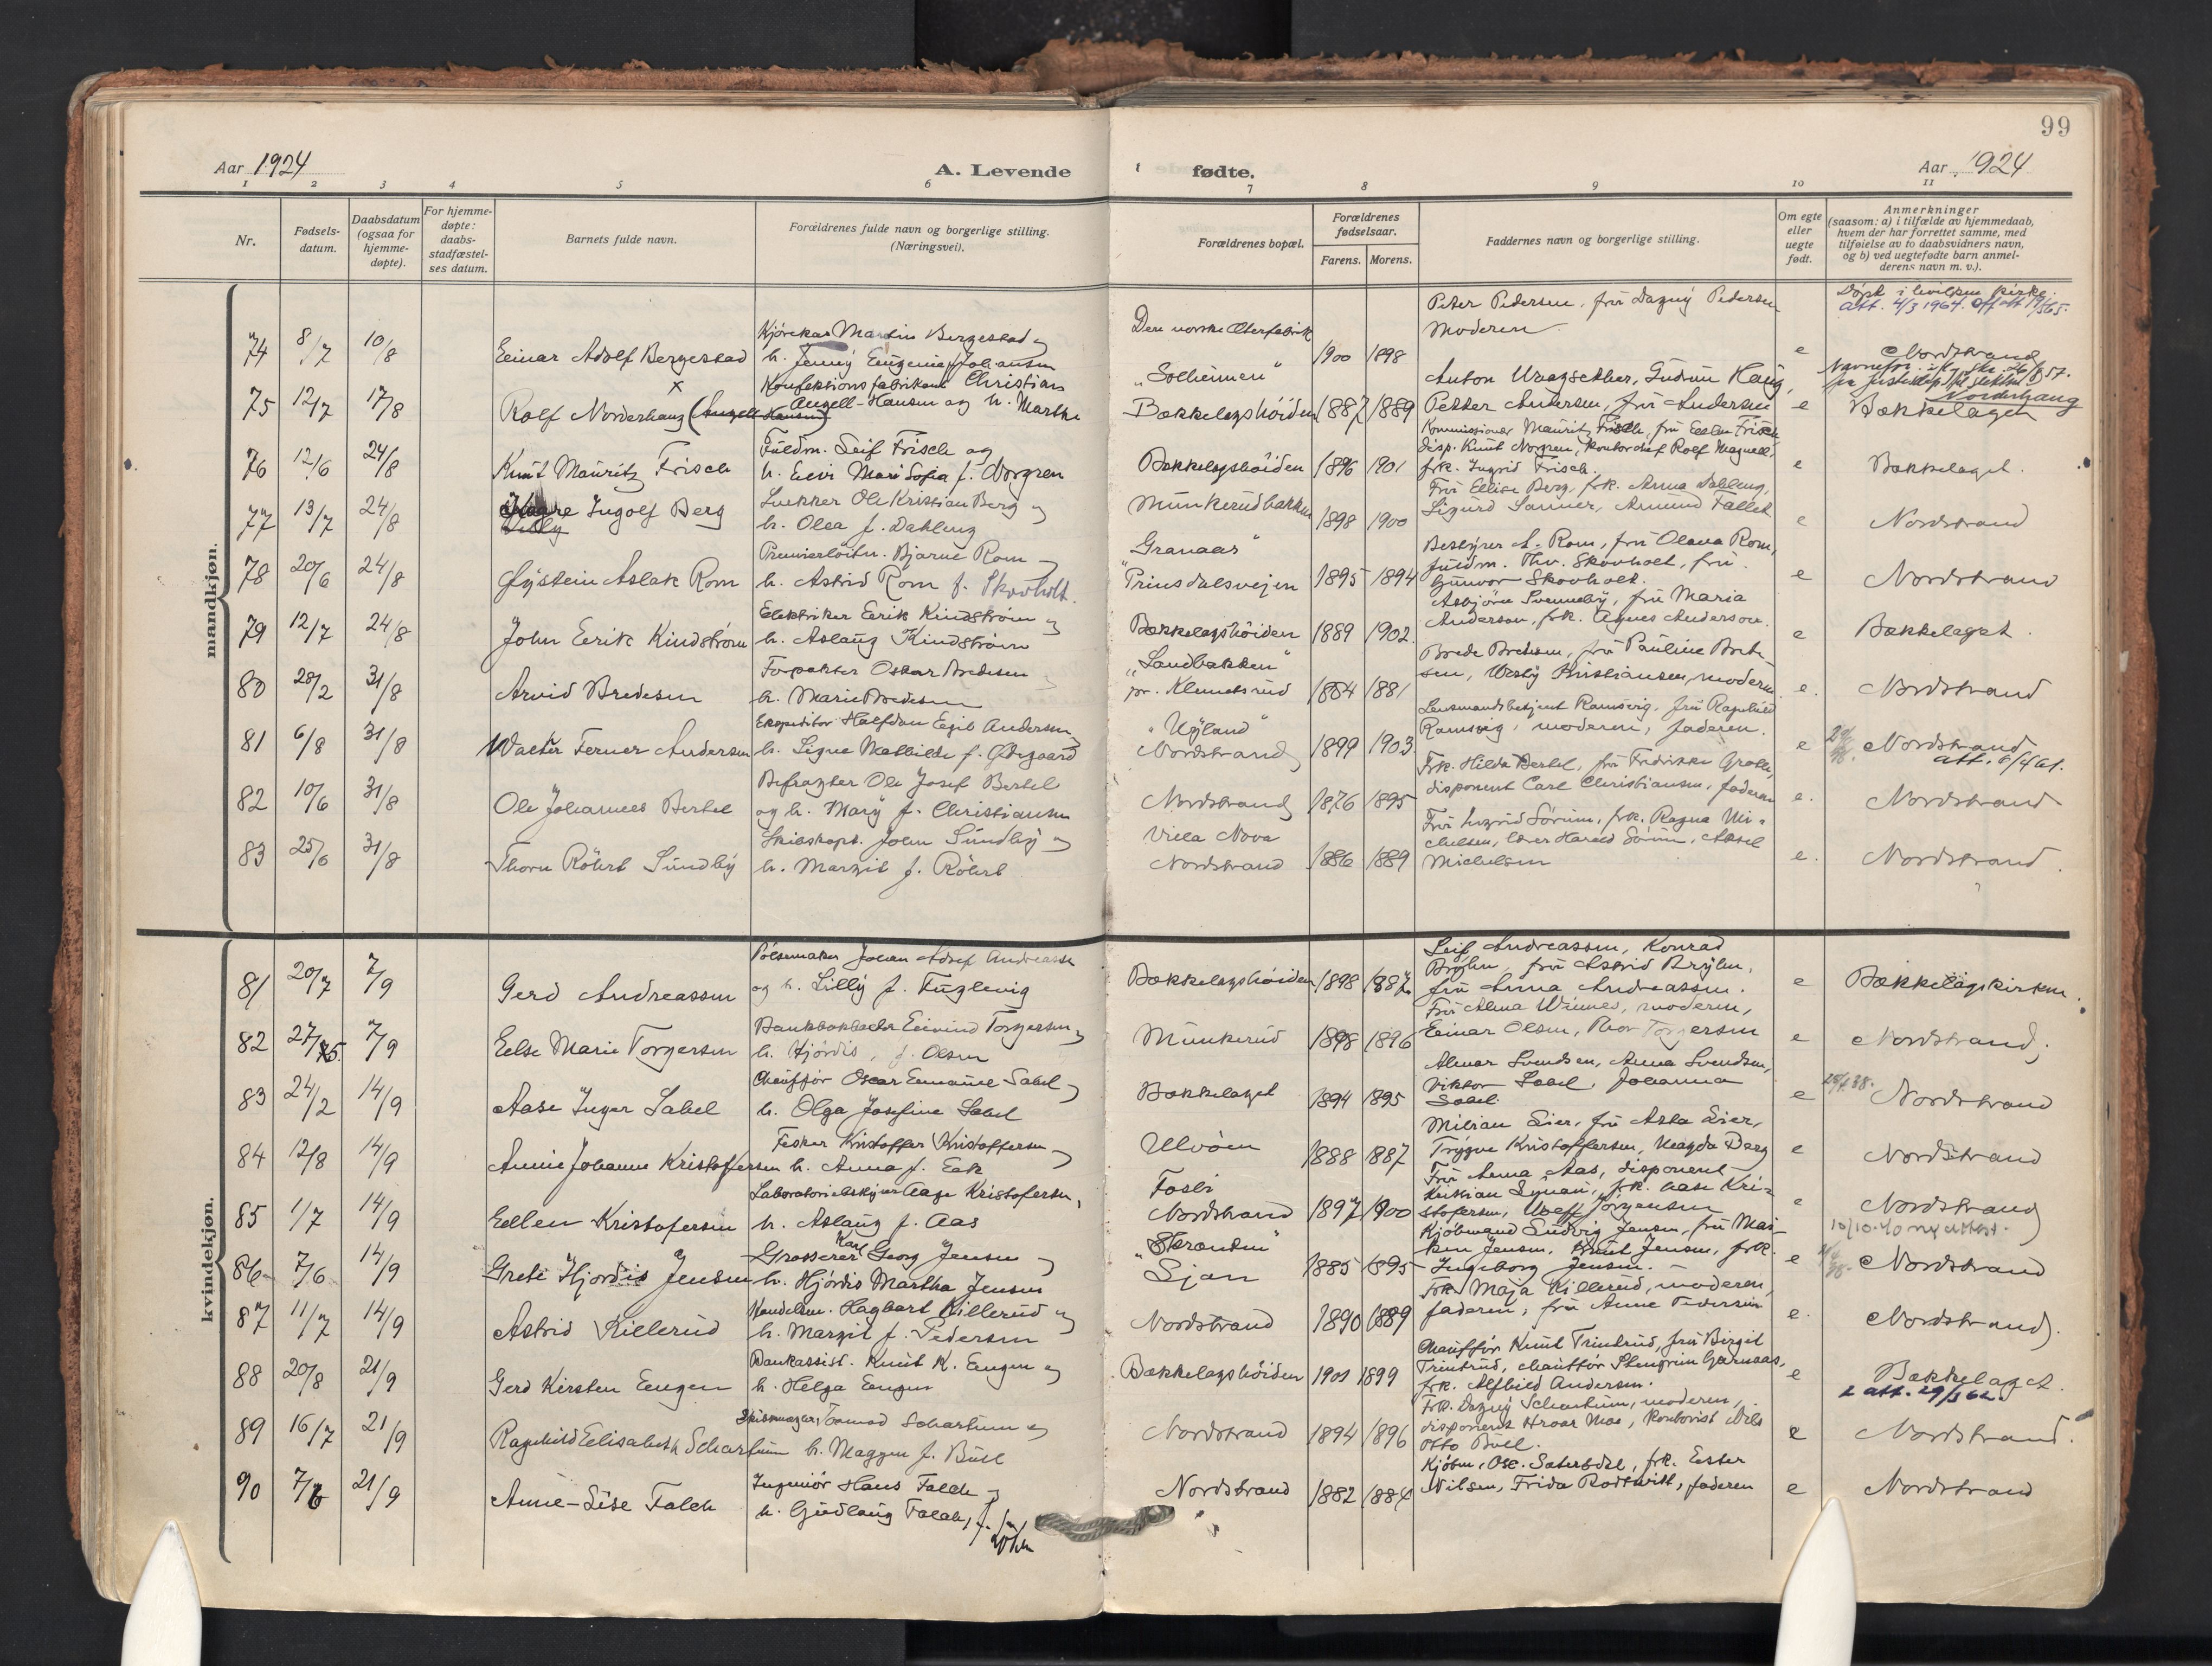 99
Aar 1924
A. Levende
fødte.
Aar 1924
1 2 3 4 5 6 7 8 9 10 11
Nr.
Fødsels-
datum.
Daabsdatum
(ogsaa for
hjemme-
døpte).
For hjemme-
døpte:
daabs-
stadfæstel-
ses datum.
Barnets fulde navn.
Forældrenes fulde navn og borgerlige stilling.
(Næringsvei).
Forældrenes bopæl.
Forældrenes
fødselsaar.
Farens. Morens.
Faddernes navn og borgerlige stilling.
Om egte
eller
uegte
født.
Anmerkninger
(saasom: a) i tilfælde av hjemmedaab,
hvem der har forrettet samme, med
tilføielse av to daabsvidners navn,
og b) ved uegtefødte barn anmel-
derens navn m. v.).
mandkjøn.
74 8/7 10/8
Einar Adolf Bergestad
Martin Bergestad og
h. Jenny Eugenie f. Johansen
Den norske
"Solheimen"
1900 1898
Peter Pedersen, fru Dagny Pedersen
Moderen
e
att. 4/3 1964.
Nordstrand
75 12/7 17/8
Rolf Norderhaug
Konfektionsfabrikant Christian
Angell-Hansen og h. Marthe
Bækkelagshöiden
1887 1889
Anton Waagsether, Gudrun Haug,
Petter Andersen, fru Andersen
e
Norderhaug
Bækkelaget
76 12/6 24/8
Knut Mauritz Frisch
Fuldm. Leif Frisch og
h. Elvi Mari Sofia f. Norgren
Bækkelagshöiden
1896 1901
Kommissionær Mauritz Frisch, fru Frisch
disp. Knut Norgren, kontorchef Rolf Magnell,
frk. Ingrid Frisch.
e
Bækkelaget.
77 13/7 24/8
Ingolf Berg
Ole Kristian Berg og
h. Olea f. Dahleng
Munkerudbakken
"Granaas"
1898 1900
Fru Ellise Berg, frk. Anna Dahleng,
Sigurd Sanner, Amund Fallet
e
Nordstrand
78 20/6 24/8
Øystein Aslak Rom
Premierlöitn. Bjarne Rom
h. Astrid Rom f. Skovholt.
Prinsdalsvejen
1895 1894
Bestyrer A. Rom, fru Olava Rom,
fuldm. Thv. Skovholt, fru
Gunvor Skovholt.
e
Nordstrand
79 12/7 24/8
John Eerik Kindström
Elektriker Eerik Kindström og
h. Aslaug Kindström
Bækkelagshöiden
1889 1902.
Asbjörn Svenneby, fru Maria
Anderson, frk. Agnes Anderson.
e
Bækkelaget.
80 28/2 31/8
Arvid Bredesen
Forpakter Oskar Bredesen
h. Marie Bredesen
"Sandbakken"
pr. Klemetsrud
1884 1881
Brede Bredesen, fru Pauline Brede-
sen, Kristiansen, moderen
e.
Nordstrand
81 6/8 31/8
Walter Ferner Andersen
Ekspeditör Halfdan Egil Andersen
h. Signe Mathilde f. Ødegaard
"Nyland"
Nordstrand
1899 1903.
Lensmandsbetjent Ramsvig, fru Ragnhild
Ramsvig, moderen, faderen.
e
Nordstrand
att. 6/4 61.
82 10/6 31/8
Ole Johannes Bertel
Befragter Ole Josef Bertel
og h. Mary f. Christiansen
Nordstrand
1876 1895
Frk. Hilda Bertel, fru Fredrikke
disponent Carl Christiansen, faderen
e.
Nordstrand
83 25/6 31/8
Thorn Röhrt Sundby
Skibskapt. John Sundby og
h. Margit f. Röhrt
Villa Nova
Nordstrand
1886 1889
Fru Ingrid Sörum, frk. Ragna Mi-
chelsen, Harald Sörum, Aksel
Michelsen
e.
Nordstrand.
kvindekjøn.
81 20/7 7/9
Gerd Andreassen
Pölsemaker Johan Adolf Andreassen
og h. Lilly f. Fuglevig
Bækkelagshöiden
1898 1887.
Leif Andreassen, Konrad
Bryhn, fru Astrid Bryhn,
fru Anna Andreassen.
e
Bækkelagskirken.
82 7/9
Else Marie Torgersen
Bankbokholder Eivind Torgersen og
h. Hjördis, f. Olsen
Munkerud
1898 1896
Fru Alma Winnes, moderen,
Einar Olsen, Thor Torgersen
e
Nordstrand,
83 24/2 14/9
Aase Inger Sabel
Chaufför Oscar Emanuel Sabel og
h. Olga Josefine Sabel
Bækkelaget
1894 1895
Almar Svendsen, Anna Svendsen,
Viktor Sabel, Johanna
Sabel.
e
Nordstrand
84 12/8 14/9
Annie Johanne Kristoffersen
Fisker Kristoffer Kristoffersen
h. Anna f. Eek
Ulvöen
1888 1887
Milian Lier, fru Asta Lier,
Trygve Kristoffersen, Magda Berg
e
Nordstrand
85 1/7 14/9
Ellen Kristofersen
Laboratoriebestyrer Aage Kristofersen,
h. Aslaug f. Aas
Fosli
Nordstrand
1897 1900
Fru Anna Aas, disponent
Kristian frk. Aase Kri-
stofersen, Jörgensen
e
Nordstrand
86 7/6 14/9
Grete Hjördis Jensen
Grosserer Karl Georg Jensen og
h. Hjördis Martha Jensen
"Stranden"
Ljan
1885 1895
Kjöbmand Ludvig Jensen, fru Mar-
then Jensen, Knut Jensen, frk.
Ingeborg Jensen.
e
10/10-40 ny attest.
Nordstrand
87 11/7 14/9
Astrid Killerud
Handelsm. Hagbart Killerud og
h. Margit f. Pedersen
Nordstrand
1890 1889
Frk. Maja Killerud, moderen,
faderen, fru Anne Pedersen
e.
Nordstrand.
88 20/8 21/9
Gerd Kirsten Eugen
Bankassist. Knut K. Eugen og
h. Helga Eugen
Bækkelagshöiden
1901 1899
Chaufför Knut Trintrud, fru Birgit
Trintrud, chaufför Stengrim Garnaas,
frk. Alfhild Andersen.
e
Bækkelaget.
89 16/7 21/9
Ragnhild Elisabeth Schartum
Skibsmægler Tormod Schartum og
h. Maggen f. Bull
Nordstrand
1894 1896
Frk. Dagny Schartum, moderen,
disponent Hroar Moe, kontorist Nils
Otto Bull.
e
Nordstrand.
90 21/9
Annie-Lise Falch
Ingeniör Hans Falch og
h. Gudlaug Falch, f.
Nordstrand
1882 1884
Kjöbm. Ole Sæterdal, frk. Ester
Nilsen, Frida Rodtwitt, faderen
e
Nordstrand